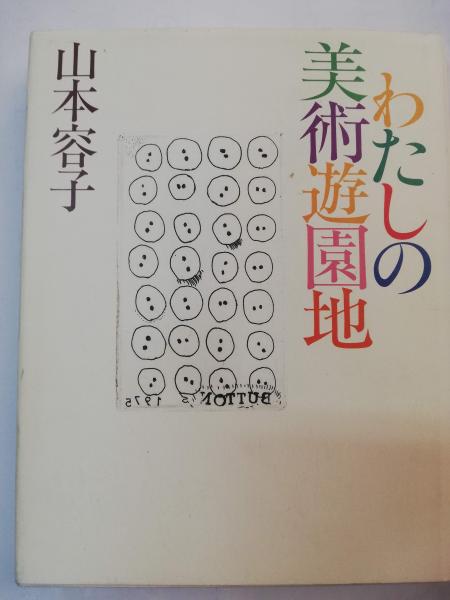 わたしの
美術遊園地
山本容子
BUTTON
1975